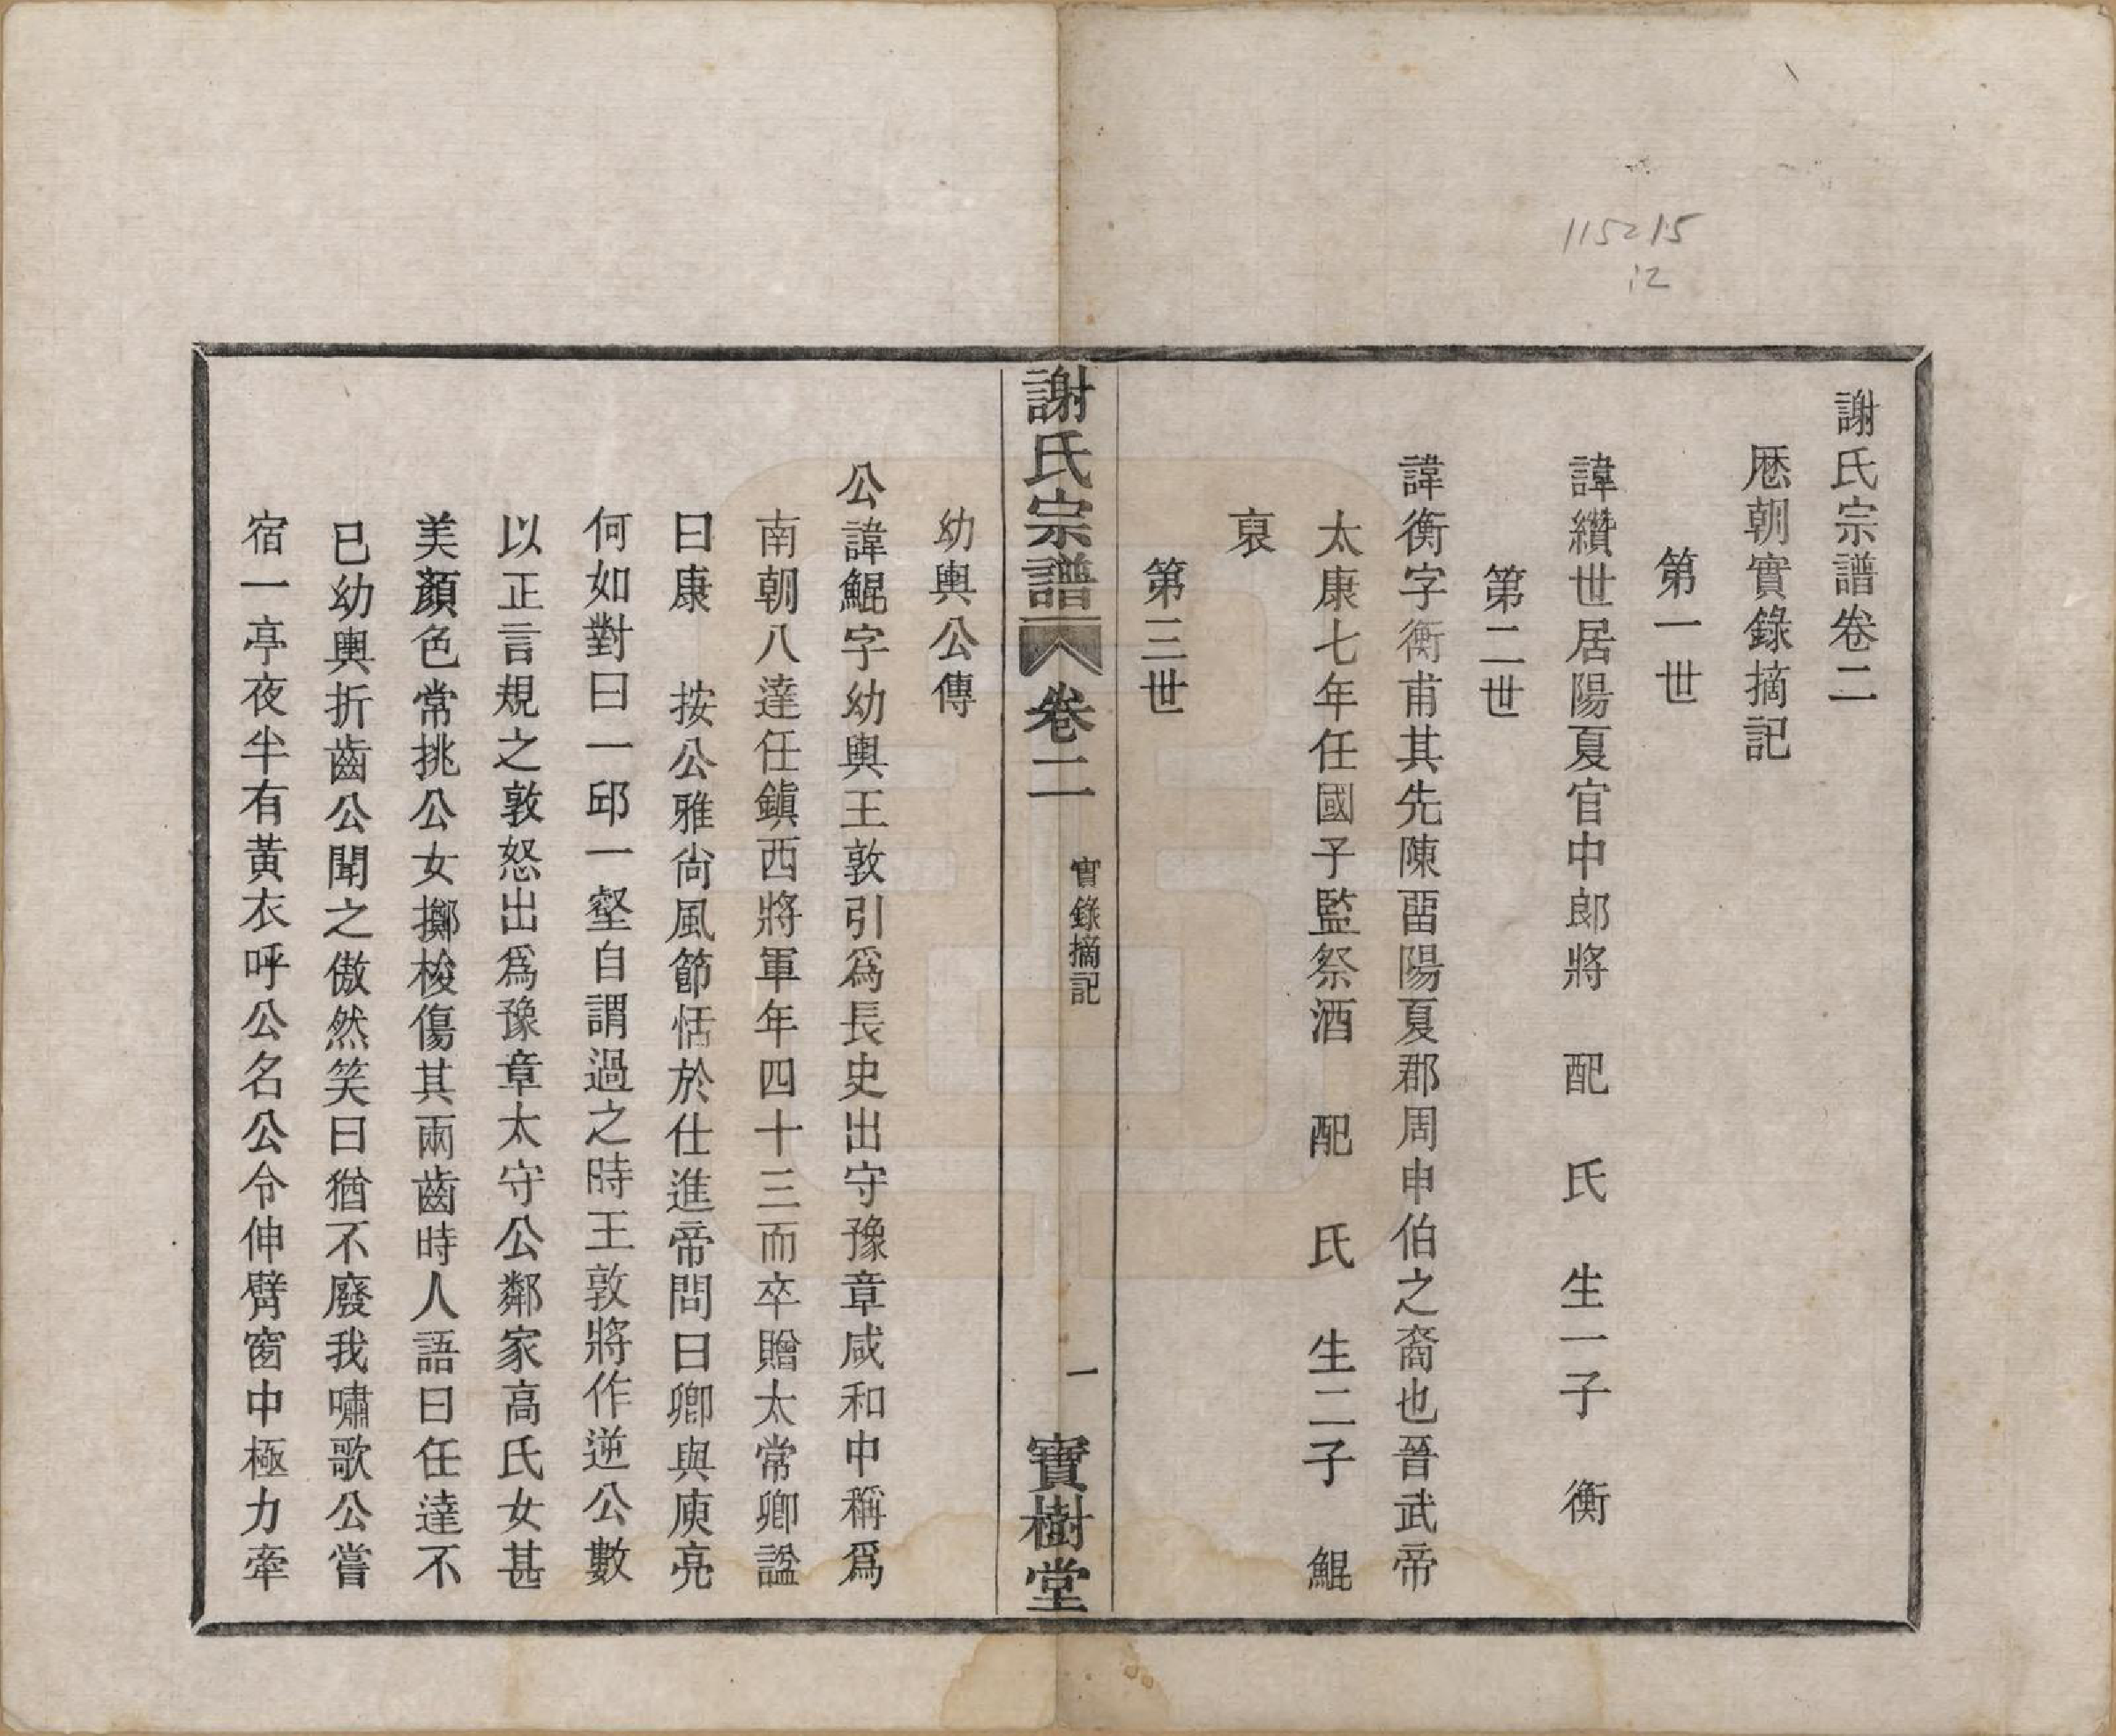 謝氏宗譜卷二
厯朝實錄摘記
第一世
諱纘世居陽夏官中郎將　配　氏　生一子　衡
第二世
諱衡字衡甫其先陳畱陽夏郡周申伯之裔也晉武帝
太康七年任國子監祭酒　配　氏　生二子　鯤
裒
第三世
謝氏宗譜　卷二　實錄摘記　一　寶樹堂
幼輿公傳
公諱鯤字幼輿王敦引爲長史出守豫章咸和中稱爲
南朝八達任鎭西將軍年四十三而卒贈太常卿諡
曰康　按公雅尙風節恬於仕進帝問曰卿與庾亮
何如對曰一邱一壑自謂過之時王敦將作逆公數
以正言規之敦怒出爲豫章太守公鄰家高氏女甚
美顏色常挑公女擲梭傷其兩齒時人語曰任達不
已幼輿折齒公聞之傲然笑曰猶不廢我嘯歌公嘗
宿一亭夜半有黃衣呼公名公令伸臂窗中極力牽
115215
12